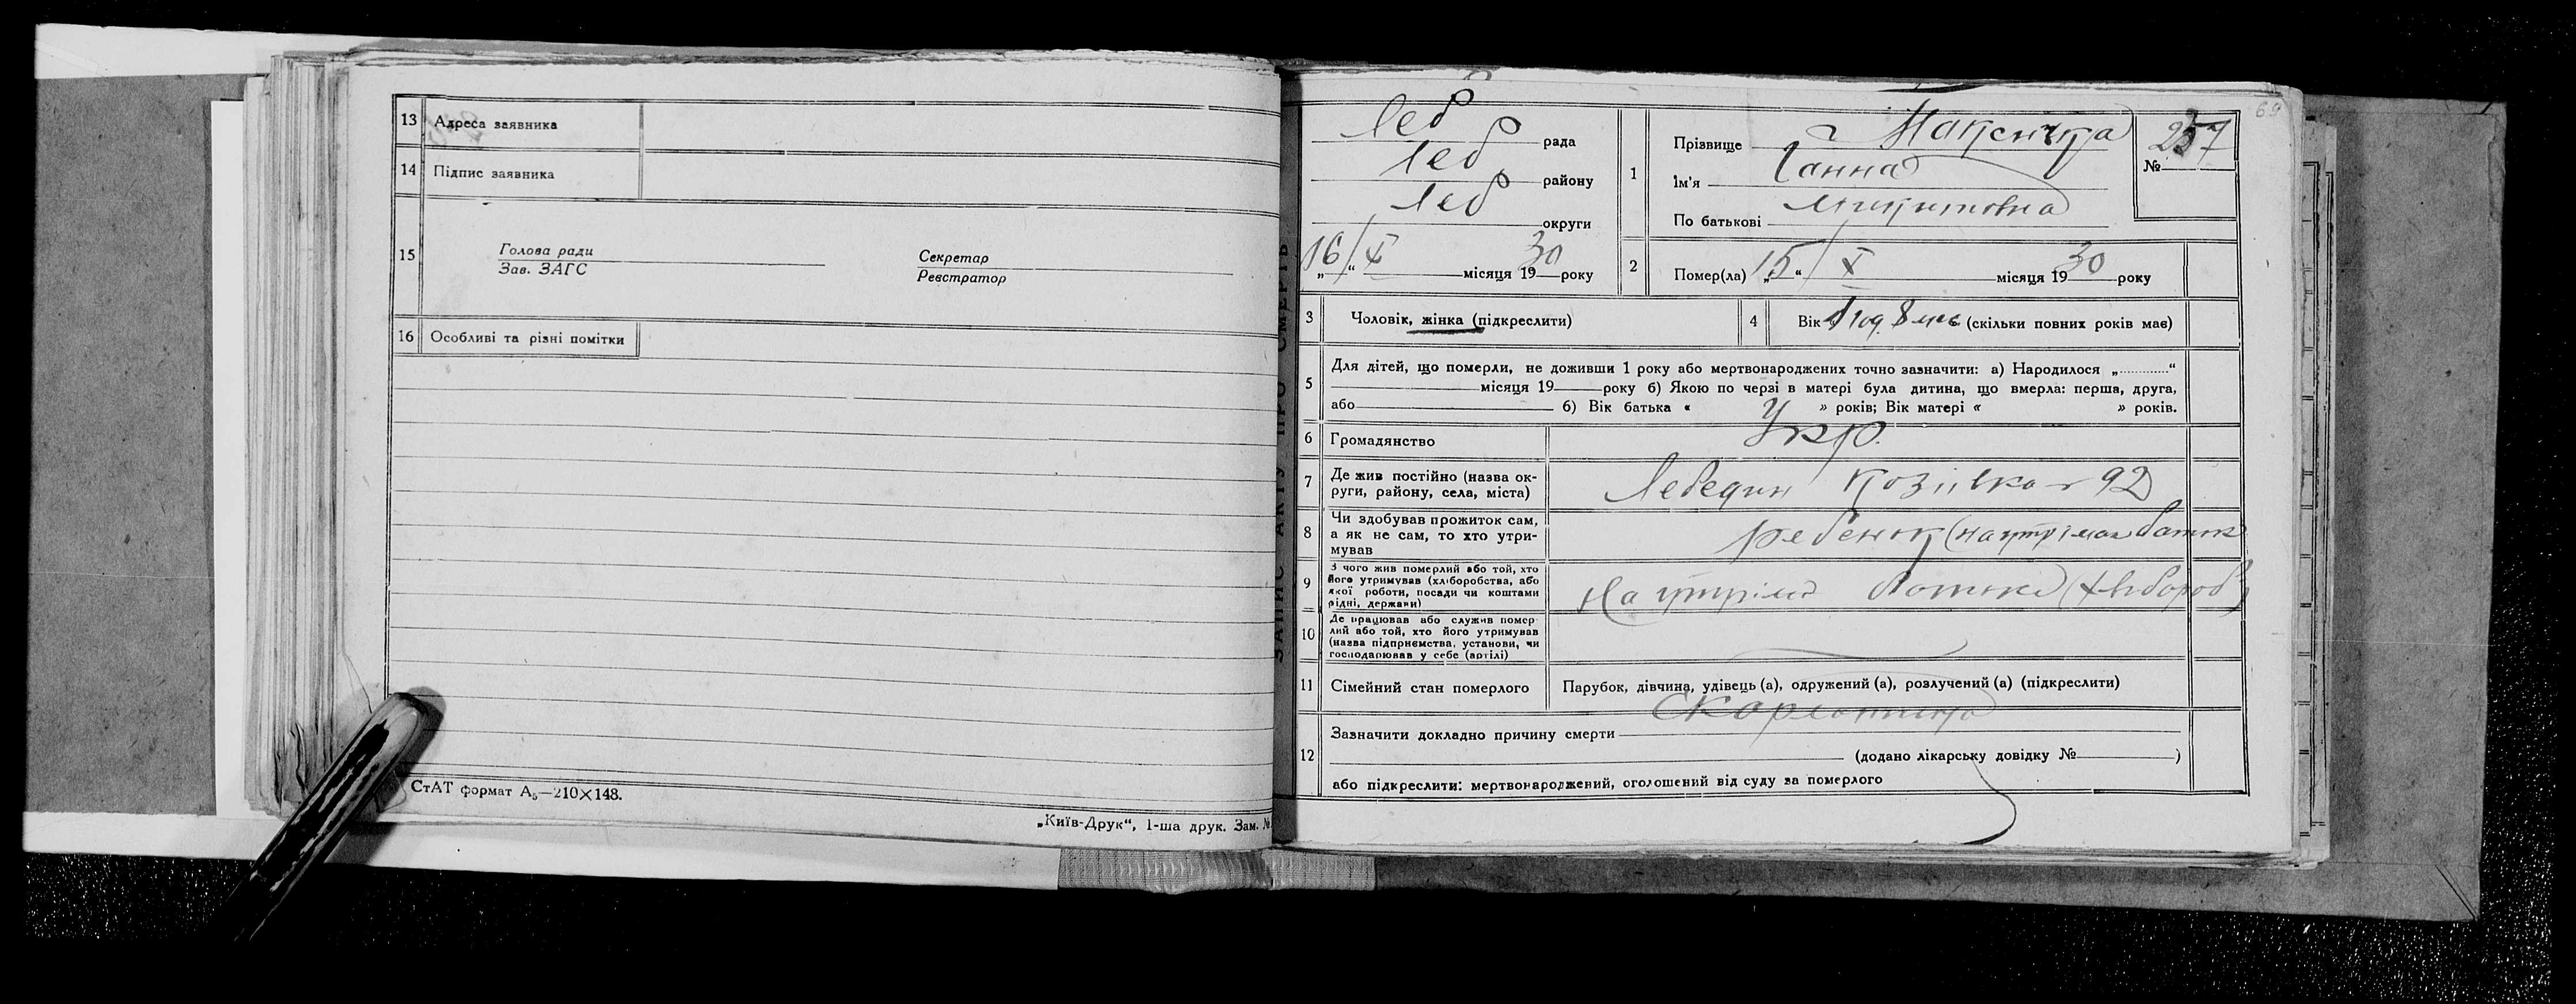 13 Адреса заявника
14 Підпис заявника
15
Голова ради
Зав. ЗАГС
Секретар
Реєстратор
16 Особливі та різні помітки
СтАТ формат А5—210×148.
„Київ-Друк“, 1-ша друк. Зам. №
ЗАПИС АКТУ ПРО СМЕРТЬ
69
Леб рада
Леб району
Леб округи
„16“ X місяця 1930 року
1 Прізвище
Ім'я Ганна
По батькові Микитовна
№ 257
2 Помер(ла) „15“ X місяця 1930 року
3 Чоловік, жінка (підкреслити)
4 Вік 1 год 8 мес (скільки повних років має)
5 Для дітей, що померли, не доживши 1 року або мертвонароджених точно зазначити: а) Народилося „............“
місяця 19 року б) Якою по черзі в матері була дитина, що вмерла: перша, друга,
або б) Вік батька « » років; Вік матері « » років.
6 Громадянство Укр.
7 Де жив постійно (назва ок-
руги, району, села, міста) Лебедин 92
8 Чи здобував прожиток сам,
а як не сам, то хто утри-
мував ребенок (на утріман батьк
9 З чого жив померлий або той, хто
його утримував (хліборобства, або
якої роботи, посади чи коштами
рідні, держави) На утрім батька (хлібороб)
10 Де працював або служив помер-
лий або той, хто його утримував
(назва підприємства, установи, чи
господарював у себе (артілі)
11 Сімейний стан померлого Парубок, дівчина, удівець (а), одружений (а), розлучений (а) (підкреслити)
12 Зазначити докладно причину смерти Скарлатина
(додано лікарську довідку № )
або підкреслити: мертвонароджений, оголошений від суду за померлого